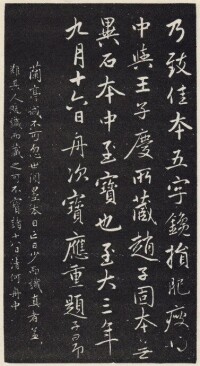 乃致佳本五字鑱損肥瘦得
中與王子慶所藏趙子固本無
異石本中至寶也至大三年
九月十六日舟次寶應重題子昂
蘭亭誠不可忽世間墨本日亡日少而識真者蓋
難其人既識而藏之可不寶諸十八日清河舟中